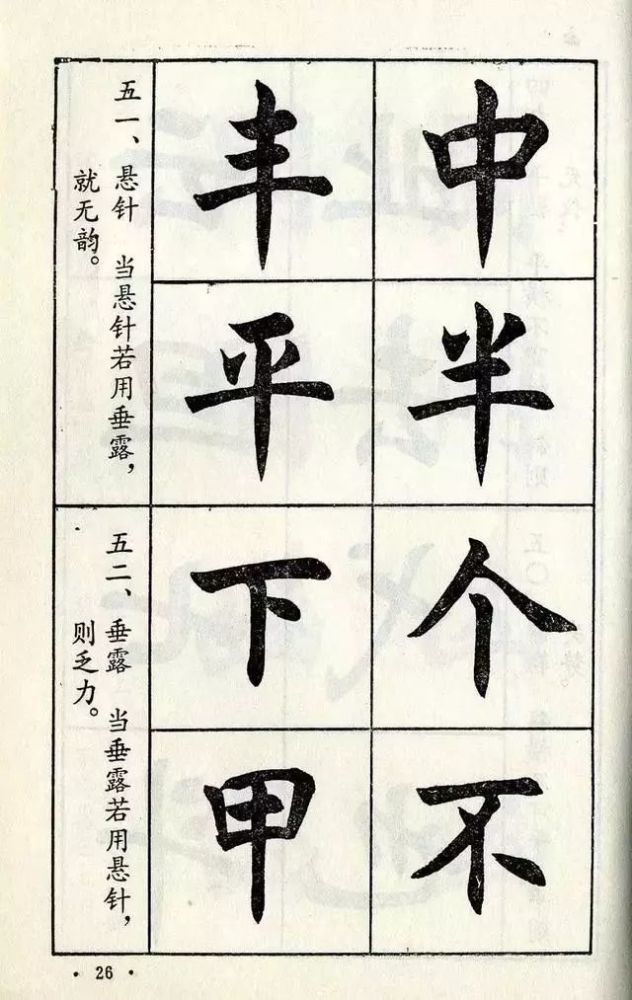 中 丰
半 平
五一、悬针 当悬针若用垂露，
就无韵。
个 下
不 甲
五二、垂露 当垂露若用悬针，
则乏力。
· 26 ·